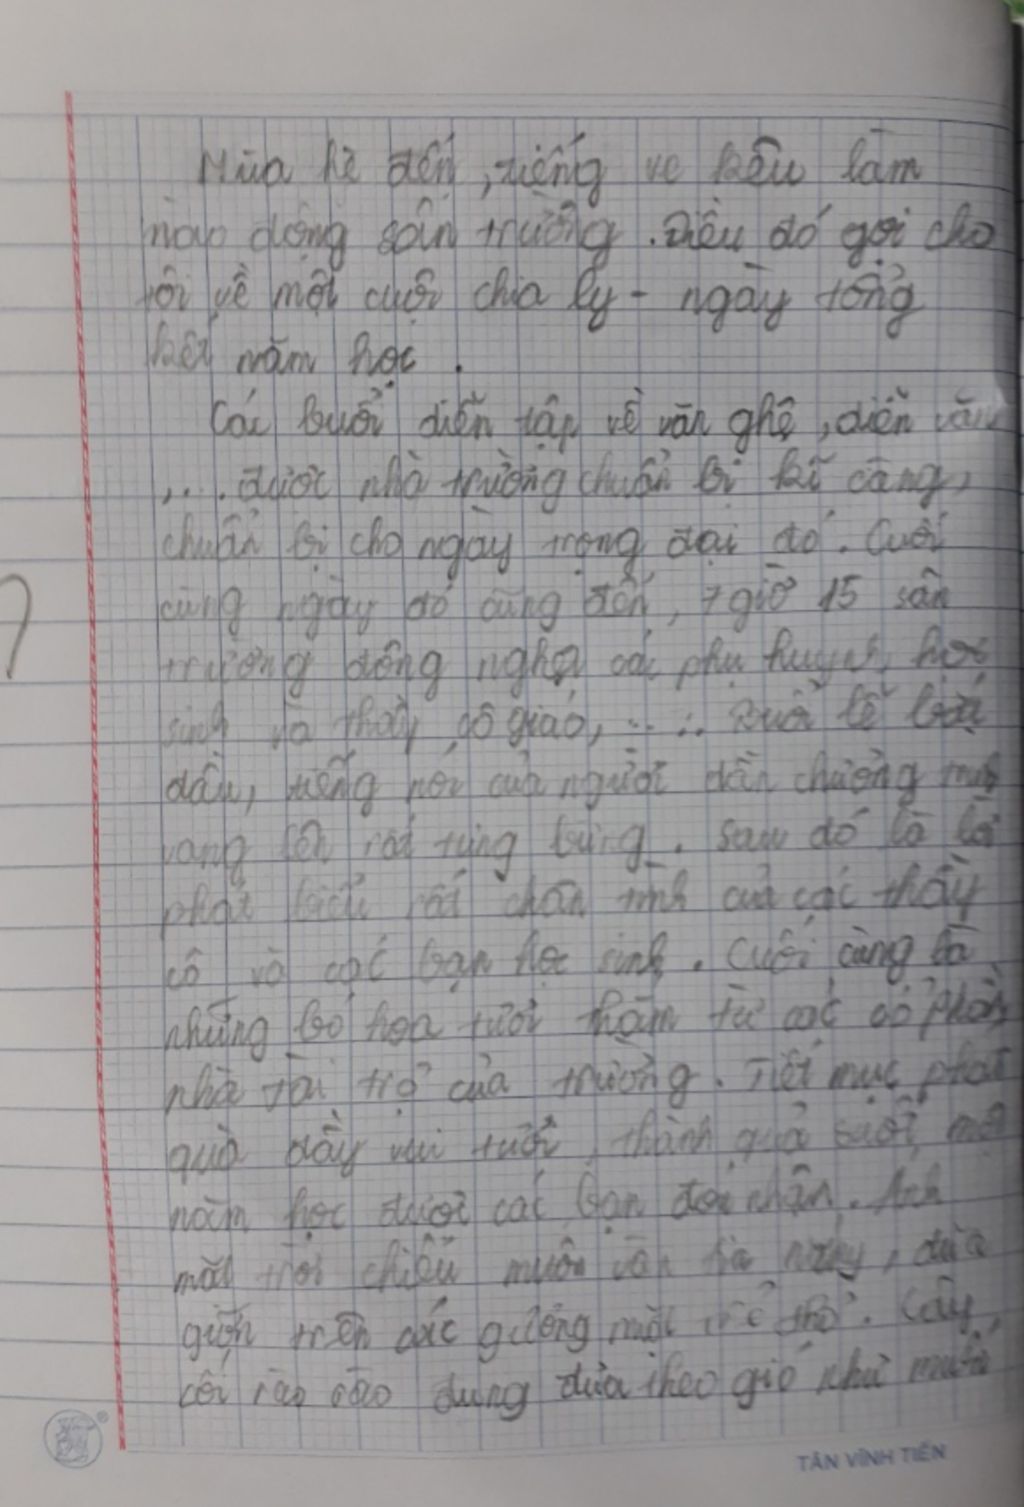 Mùa hè đến, tiếng ve kêu làm
náo động sân trường. Điều đó gợi cho
tôi về một cuộc chia ly - ngày tổng
kết năm học.
Các buổi diễn tập về văn nghệ, diễn văn
,... được nhà trường chuẩn bị kĩ càng,
chuẩn bị cho ngày trọng đại đó. Cuối
cùng ngày đó cũng đến, 7 giờ 15 sân
trường đông nghẹt các phụ huynh, học
sinh và thầy, cô giáo,.... Buổi lễ bắt
đầu, tiếng nói của người dẫn chương
vang lên rất tưng bừng. Sau đó là lời
phát biểu rất chân tình của các thầy
cô và các bạn học sinh. Cuối cùng là
những bó hoa tươi thắm từ các cổ
nhà tài trợ của trường. Tiết mục phát
quà đầy vui tươi, thành quả suốt một
năm học được các bạn đón nhận. Ánh
mặt trời chiếu muôn vàn tia nắng, đùa
giỡn trên các gương mặt trẻ thơ. Cây
cối rào rào đung đưa theo gió như muốn
TÂN VĨNH TIẾN